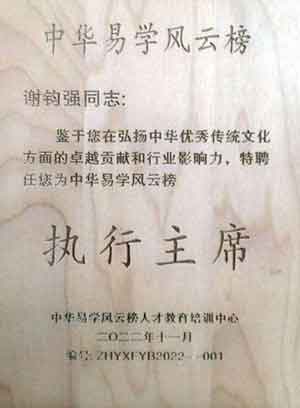 中华易学风云榜
谢钧强同志:
鉴于您在弘扬中华优秀传统文化
方面的卓越贡献和行业影响力，特聘
任您为中华易学风云榜
执行主席
中华易学风云榜人才教育培训中心
二〇二二年十一月
编号: ZHYXFYB2022---001